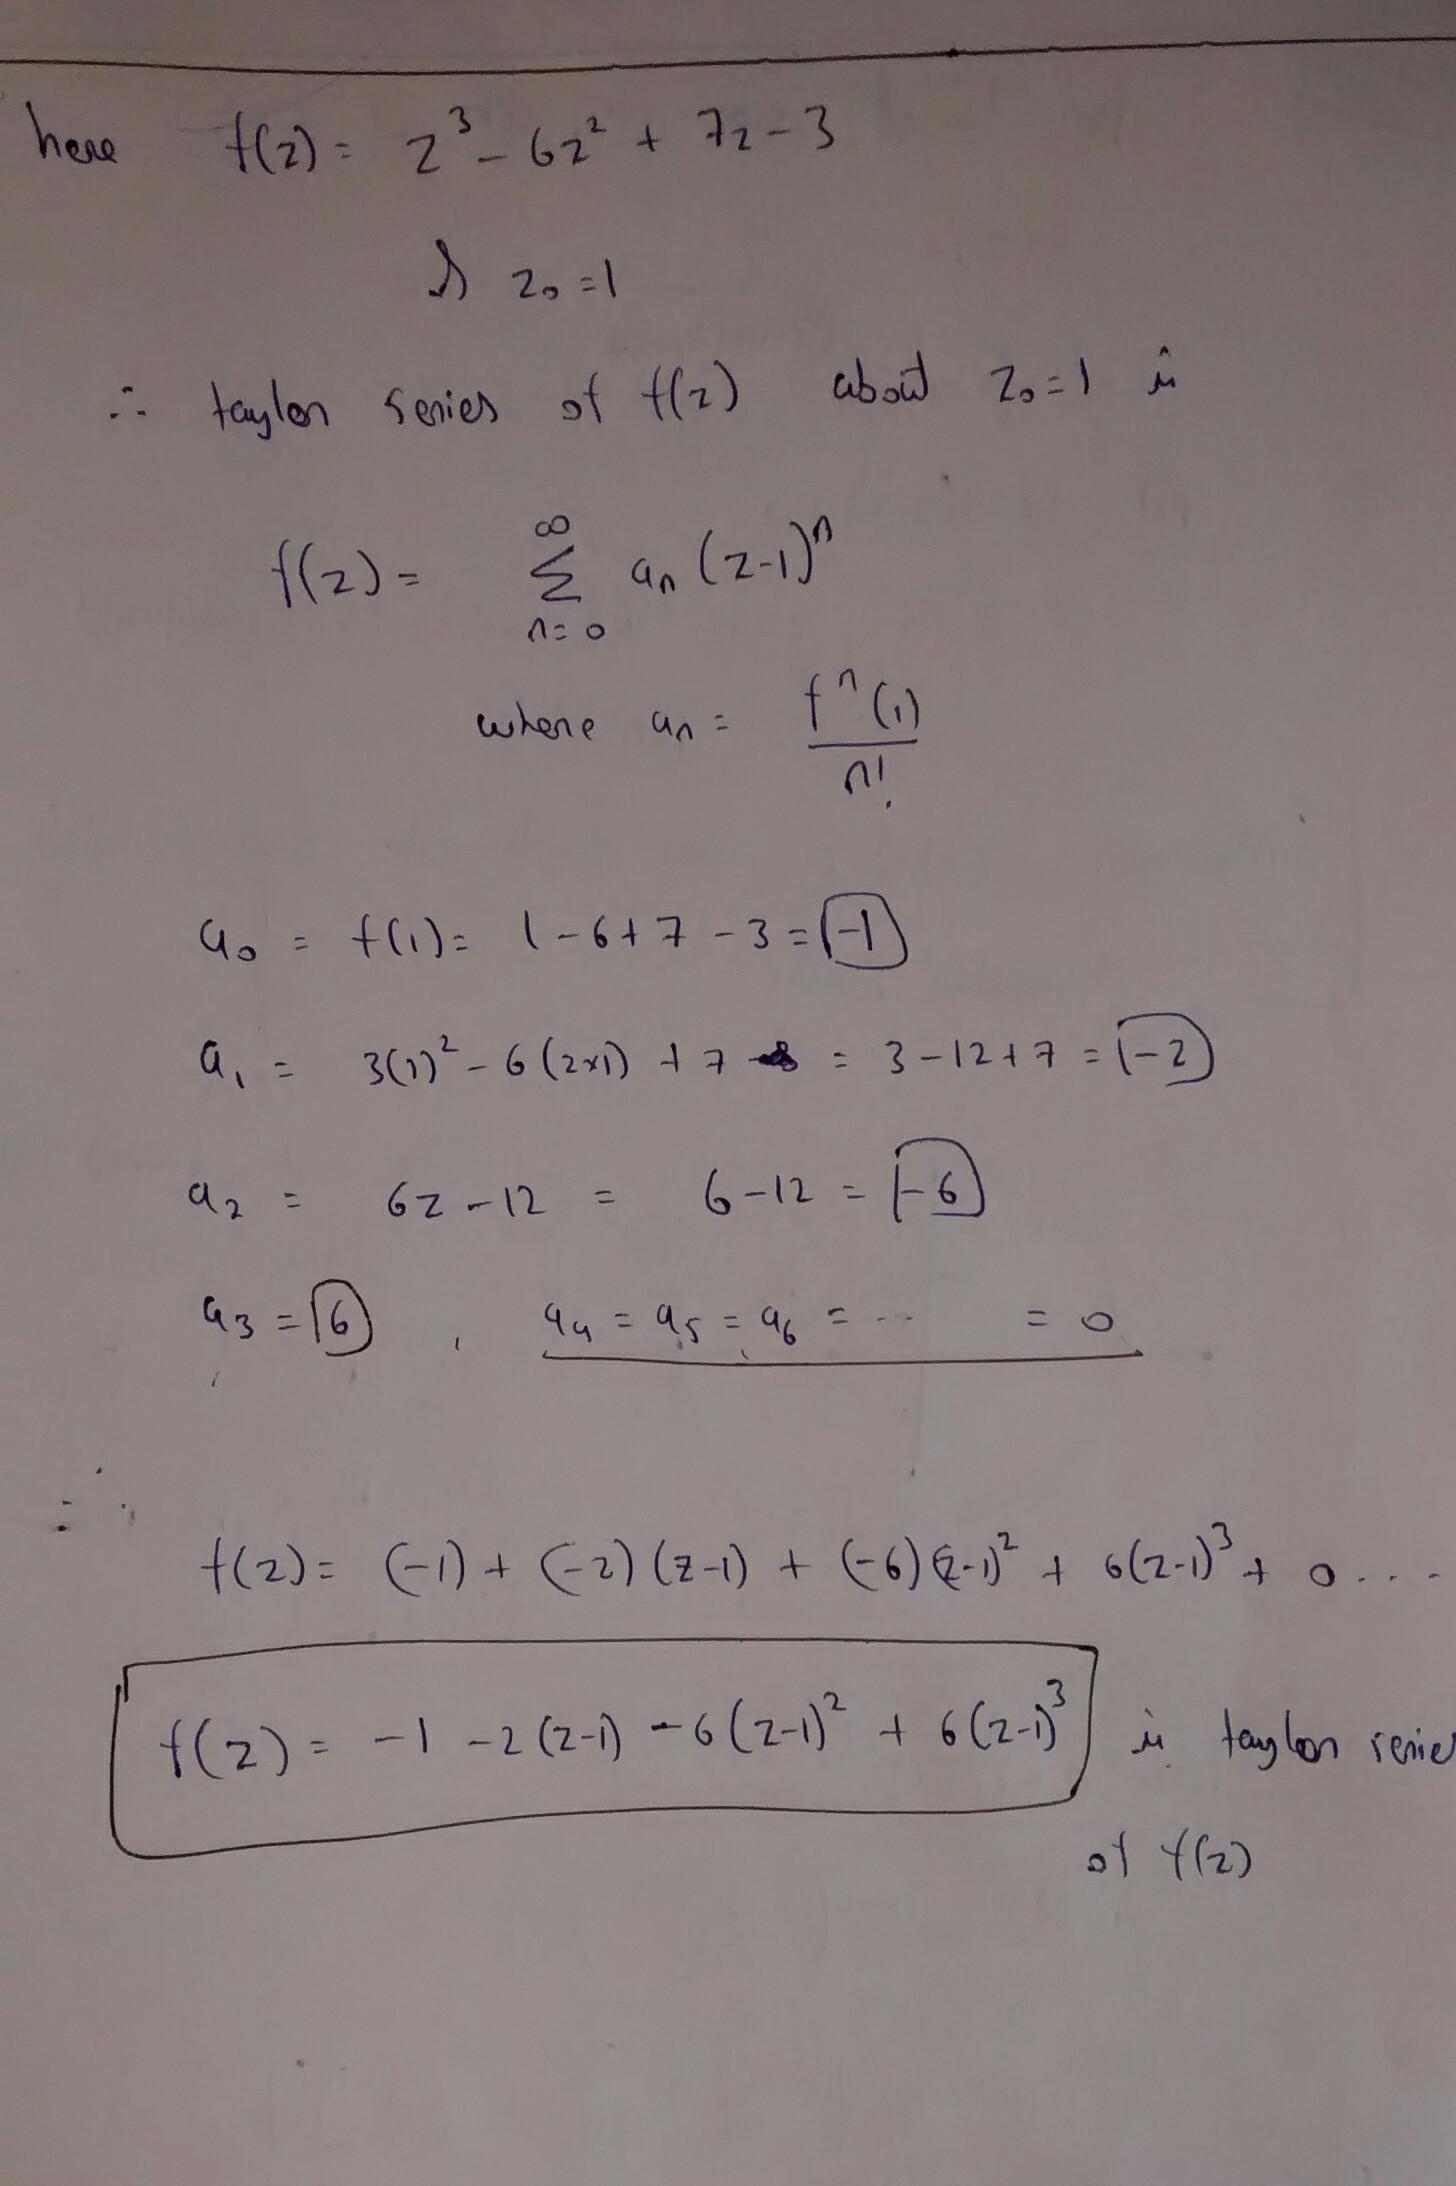 here f(z) = z³ - 6z² + 7z - 3
& z₀ = 1
∴ taylor series of f(z) about z₀ = 1 is
f(z) = ∞ Σ n=0 aₙ (z-1)ⁿ
where aₙ = fⁿ(1) / n!
a₀ = f(1) = 1 - 6 + 7 - 3 = -1
a₁ = 3(1)² - 6(2×1) + 7 = 3 - 12 + 7 = -2
a₂ = 6z - 12 = 6 - 12 = -6
a₃ = 6 , a₄ = a₅ = a₆ = ... = 0
∴
f(z) = (-1) + (-2)(z-1) + (-6)(z-1)² + 6(z-1)³ + 0 ....
f(z) = -1 - 2(z-1) - 6(z-1)² + 6(z-1)³ is taylor series
of f(z)